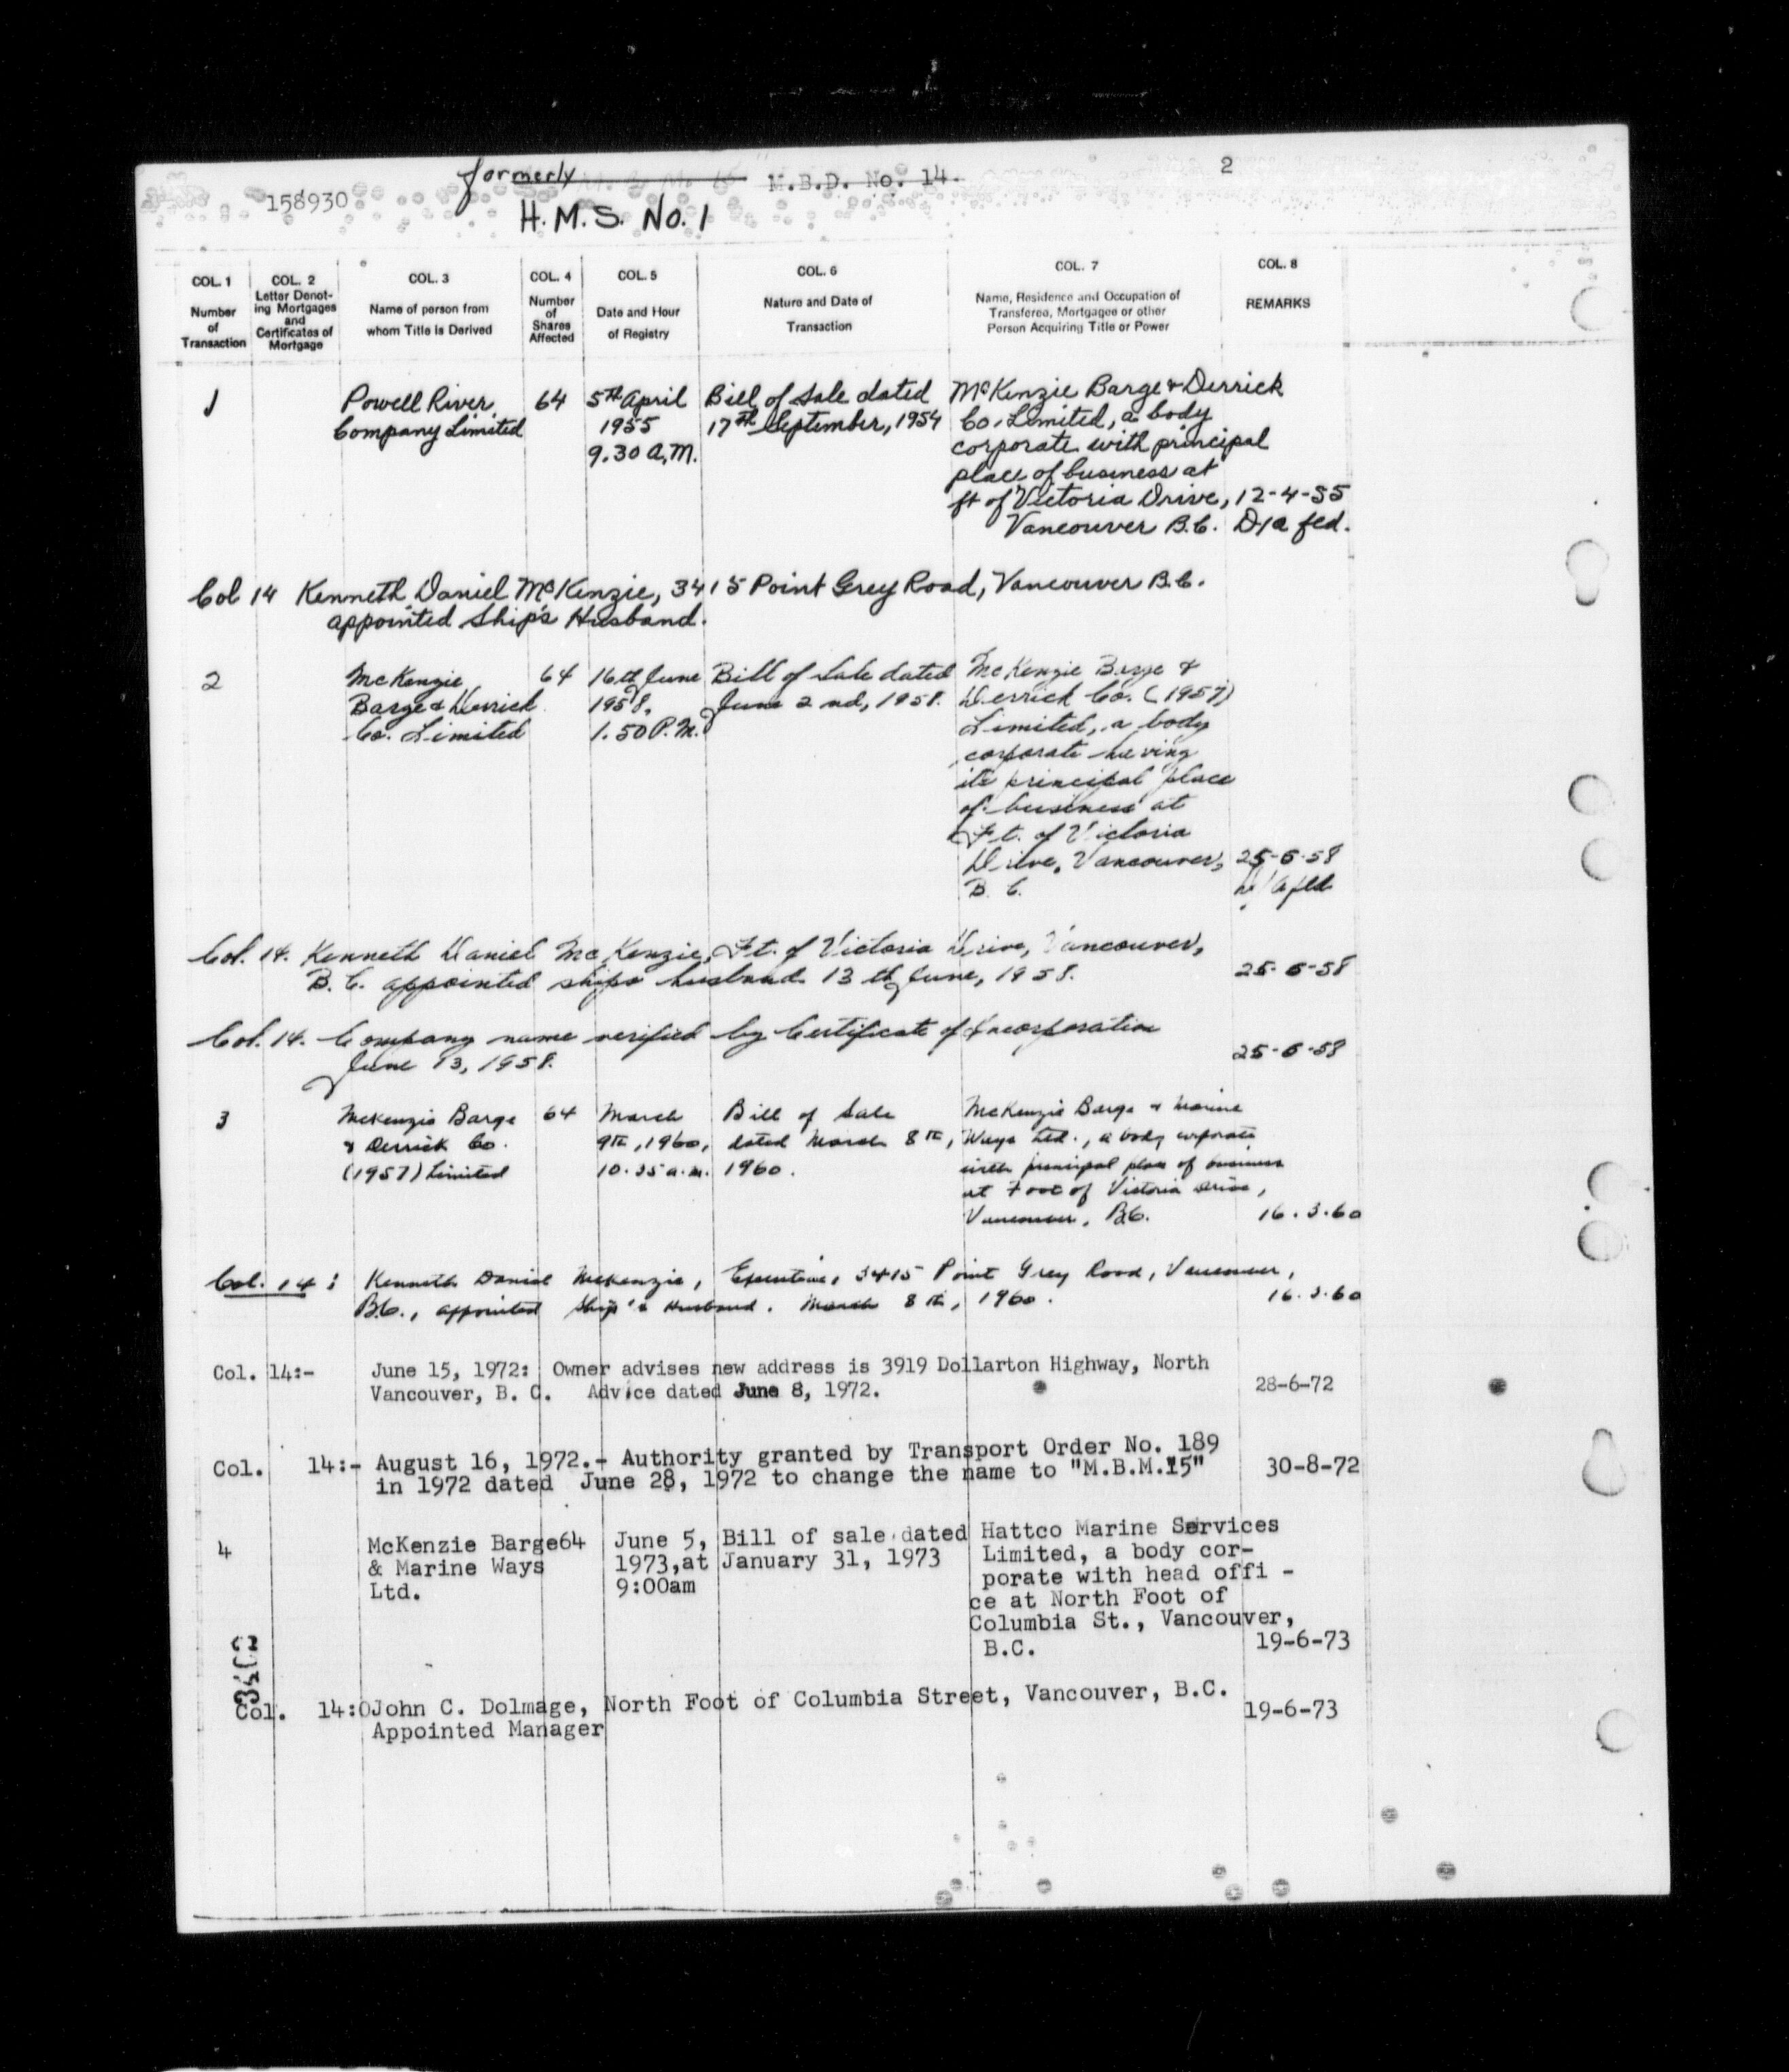 formerly M.B.D. No. 14. 2
158930
H.M.S. No. 1
COL. 1 COL. 2 COL. 3 COL. 4 COL. 5 COL. 6 COL. 7 COL. 8
Number of Transaction
Letter Denoting Mortgages and Certificates of Mortgage
Name of person from whom Title is Derived
Number of Shares Affected
Date and Hour of Registry
Nature and Date of Transaction
Name, Residence and Occupation of Transferee, Mortgagee or other Person Acquiring Title or Power
REMARKS
1 Powell River 64 5th April Bill of Sale dated McKenzie Barge & Derrick
Company Limited 1955 17th September, 1954 Co. Limited, a body
9.30 A.M. corporate with principal
place of business at
ft of Victoria Drive, 12-4-55
Vancouver B.C. D/a fld.
Col 14 Kenneth Daniel McKenzie, 3415 Point Grey Road, Vancouver B.C.
appointed Ship's Husband.
2 McKenzie 64 16th June Bill of Sale dated McKenzie Barge &
Barge & Derrick 1958, June 2nd, 1958. Derrick Co. (1957)
Co. Limited 1.50 P.M. Limited, a body
corporate having
its principal place
of business at
Ft. of Victoria
Drive, Vancouver, 25-6-58
B.C. D/a fld
Col. 14. Kenneth Daniel McKenzie, Ft. of Victoria Drive, Vancouver,
B.C. appointed ships husband 13th June, 1958. 25-6-58
Col. 14. Company name verified by Certificate of Incorporation
June 13, 1958. 25-6-58
3 McKenzie Barge 64 March Bill of Sale McKenzie Barge & Marine
& Derrick Co. 9th, 1960, dated March 8th, Ways Ltd., a body corporate
(1957) Limited 10.35 a.m. 1960. with principal place of business
at Foot of Victoria Drive,
Vancouver, B.C. 16.3.60
Col. 14: Kenneth Daniel McKenzie, Executive, 3415 Point Grey Road, Vancouver,
B.C., appointed Ship's Husband. March 8th, 1960. 16.3.60
Col. 14:- June 15, 1972: Owner advises new address is 3919 Dollarton Highway, North
Vancouver, B. C. Advice dated June 8, 1972. 28-6-72
Col. 14:- August 16, 1972.- Authority granted by Transport Order No. 189
in 1972 dated June 28, 1972 to change the name to "M.B.M.15" 30-8-72
4 McKenzie Barge64 June 5, Bill of sale dated Hattco Marine Services
& Marine Ways 1973,at January 31, 1973 Limited, a body cor-
Ltd. 9:00am porate with head offi -
ce at North Foot of
Columbia St., Vancouver,
B.C. 19-6-73
Col. 14:0John C. Dolmage, North Foot of Columbia Street, Vancouver, B.C.
Appointed Manager 19-6-73